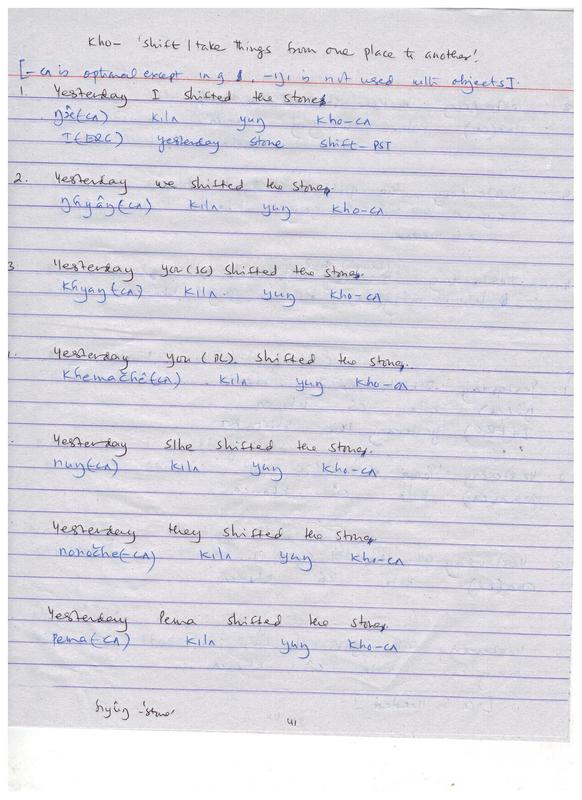 kho- 'shift / take things from one place to another'.
[-cʌ is optional except in 9 , is not used with objects].
1. Yesterday I shifted the stones
(-cʌ) kilʌ yuŋ kho-cʌ
I (ERG) yesterday stone shift-PST
2. Yesterday we shifted the stones.
ŋâyâŋ(-cʌ) kilʌ yuŋ kho-cʌ
3 Yesterday you (SG) shifted the stones.
khyaŋ(-cʌ) kilʌ yuŋ kho-cʌ
Yesterday you (PL) shifted the stones.
khemačhê(-cʌ) kilʌ yuŋ kho-cʌ
Yesterday s/he shifted the stones.
nuŋ(-cʌ) kilʌ yuŋ kho-cʌ
Yesterday they shifted the stones
nonočhe(-cʌ) kilʌ yuŋ kho-cʌ
Yesterday Pema shifted the stones
Pema(-cʌ) kilʌ yuŋ kho-cʌ
'stone'
41